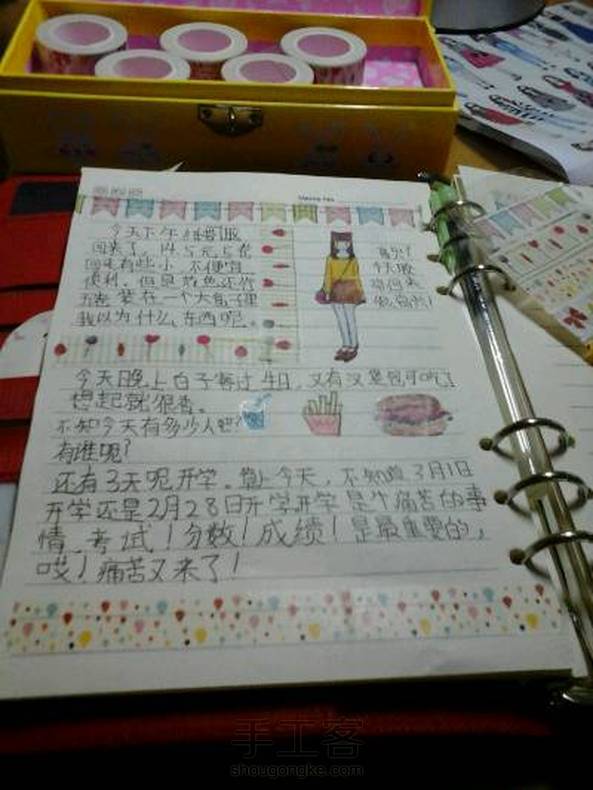 今天下午胶带取
回来了,14.5元5卷
回来有些小,不便宜
便利,但是颜色还行
卷装在一个大包子里
我以为什么东西呢。
高兴!
今天取
今天晚上白子 过生日,又有汉堡包可吃了
想起就很香。
不知今天有多少人吧?
有谁呢?
还有3天呢开学。算上今天,不知道3月1日
开学还是2月28日开学开学是个痛苦的事
情,考试!分数!成绩!是最重要的,
哎!痛苦又来了!
手工客
shougongke.com